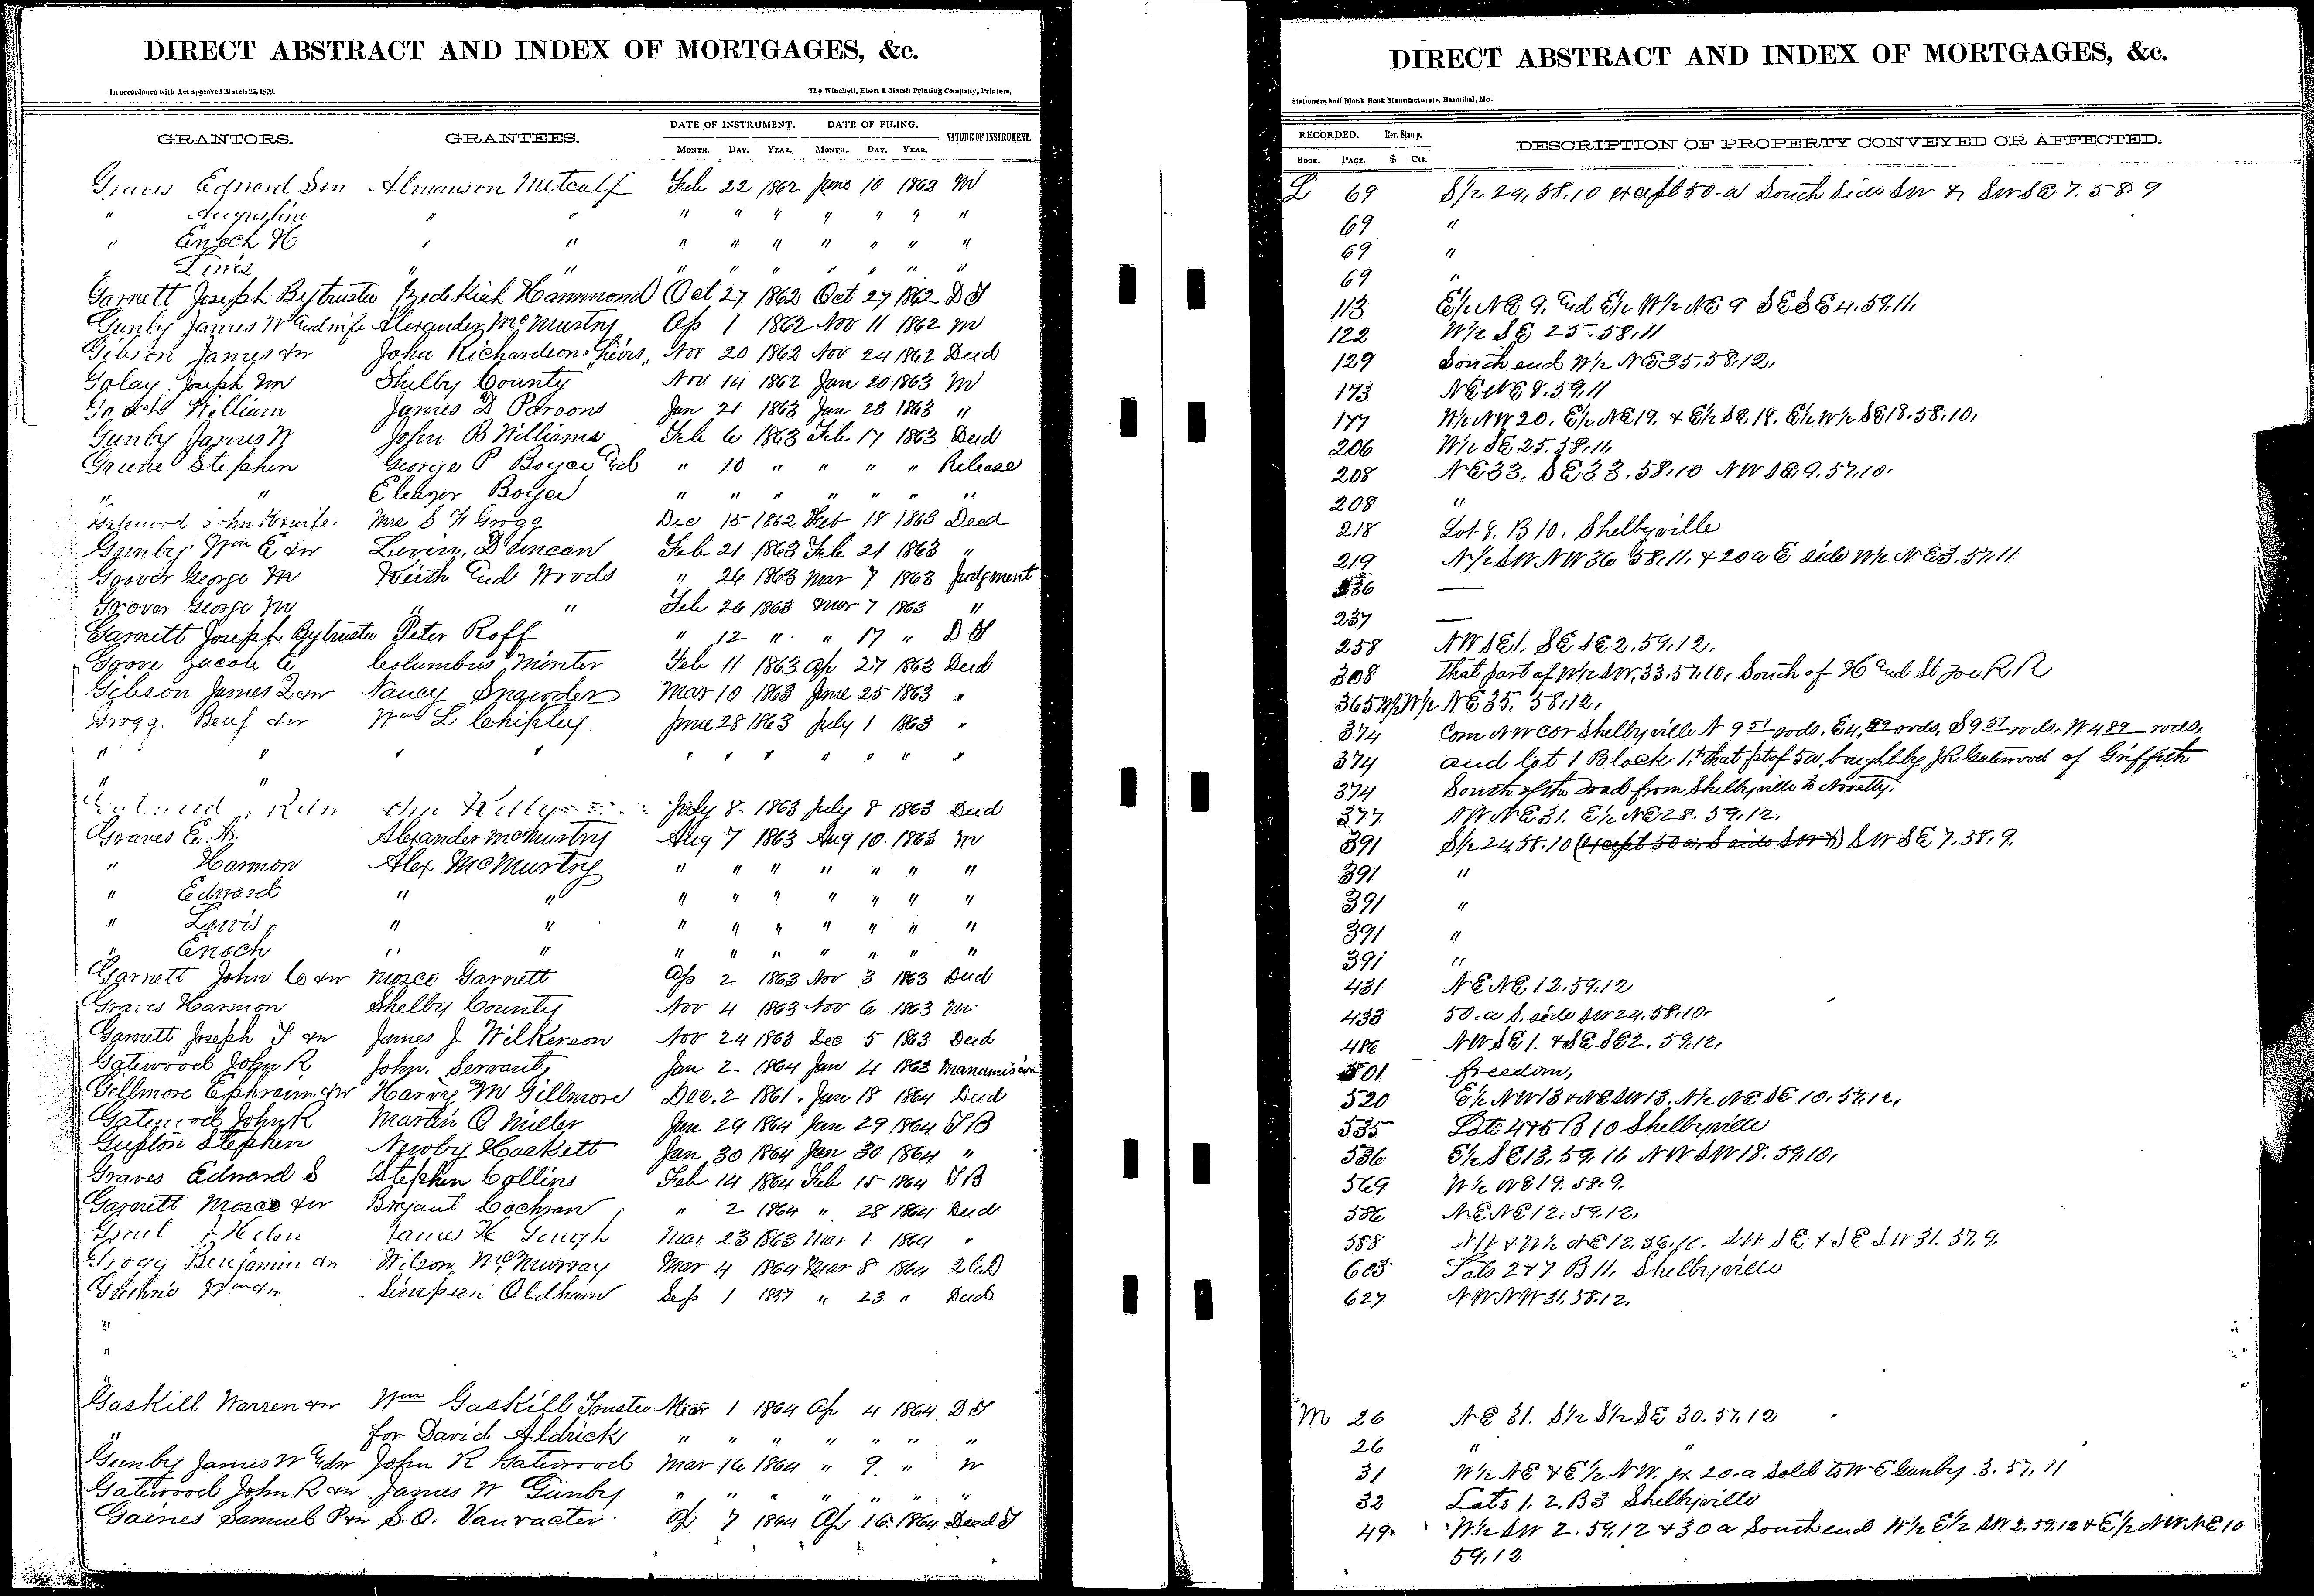 DIRECT ABSTRACT AND INDEX OF MORTGAGES, &c.
In accordance with Act approved March 25, 1870.
The Winchell, Ebert & Marsh Printing Company, Printers,
GRANTORS. GRANTEES. DATE OF INSTRUMENT. DATE OF FILING. NATURE OF INSTRUMENT.
MONTH. DAY. YEAR. MONTH. DAY. YEAR.
Graves Edward Almanson Metcalf Feb 22 1862 June 10 1862 M
" Augustine " " " " " " " " "
" Enoch H " " " " " " " " "
" " " " " " " " " "
Garnett Joseph By trustee Hammond Oct 27 1862 Oct 27 1862 D T
Gunby James W and wife Alexander McMurtry Ap 1 1862 Nov 11 1862 M
Gibson James &w John Richardsons heirs Nov 20 1862 Nov 24 1862 Deed
Golay Joseph M Shelby County Nov 14 1862 Jan 20 1863 M
William James D Parsons Jan 21 1863 Jan 23 1863 "
Gunby James W John B Williams Feb 6 1863 Feb 17 1863 Deed
Greene Stephen George P Boyer and " 10 " " " " Release
" " Eleazer Boyer " " " " " " "
Gatewood John R &wife Mrs S F Grogg Dec 15 1862 Feb 18 1863 Deed
Gunby Wm E &w Levin Duncan Feb 21 1863 Feb 21 1863 "
Grover George M Keith and Woods " 26 1863 Mar 7 1863 Judgment
Grover George M " " Feb 26 1863 Mar 7 1863 "
Garnett Joseph By trustee Peter Roff " 12 " " 17 " D T
Grove Jacob C Columbus Minter Feb 11 1863 Ap 27 1863 Deed
Gibson James &w Nancy Snawder Mar 10 1863 June 25 1863 "
Grogg Benj &w Wm L Chipley June 28 1863 July 1 1863 "
" " " " " " " " " " "
" "
July 8 1863 July 8 1863 Deed
Graves E. H. Alexander McMurtry Aug 7 1863 Aug 10 1863 M
" Harmon Alex McMurtry " " " " " " "
" Edward " " " " " " " " "
" Lewis " " " " " " " " "
" Enoch " " " " " " " " "
Garnett John C &w Mosco Garnett Ap 2 1863 Nov 3 1863 Deed
Graves Harmon Shelby County Nov 4 1863 Nov 6 1863 M
Garnett Joseph T &w James J Wilkerson Nov 24 1863 Dec 5 1863 Deed
Gatewood John R John, Servant, Jan 2 1864 Jan 4 1863 Manumission
Gillmore Ephraim &w Harvy M Gillmore Dec. 2 1861. Jan 18 1864 Deed
Gatewood John R Martin Q Miller Jan 29 1864 Jan 29 1864 T B
Gupton Stephen Newby Hackett Jan 30 1864 Jan 30 1864 "
Graves Edward S Stephen Collins Feb 14 1864 Feb 15 1864 T B
Garnett Mosco &w Bryant Cochran " 2 1864 " 28 1864 Deed
James K Gough Mar 23 1863 Mar 1 1864 "
Grogg Benjamin &w Wilson McMurray Mar 4 1864 Mar 8 1864
Guthrie Wm &w Simpson Oldham Sep 1 1857 " 23 " Deed
"
"
Gaskill Warren &w Wm Gaskill Trustee Mar 1 1864 Ap 4 1864 D T
" for David Aldrick " " " " " " "
Gunby James W &w John R Gatewood Mar 16 1864 " 9 " W
Gatewood John R &w James W Gunby " " " " " " "
Gaines Samuel P &w S. O. Vanvacter Ap 7 1864 Ap 16 1864 Deed T
DIRECT ABSTRACT AND INDEX OF MORTGAGES, &c.
Stationers and Blank Book Manufacturers, Hannibal, Mo.
RECORDED. Rev. Stamp. DESCRIPTION OF PROPERTY CONVEYED OR AFFECTED.
BOOK. PAGE. $ Cts.
L 69 S/2 24, 58.10 except 50-a South side SW & SW SE 7.58.9
69 "
69 "
69 "
113 E/2 NE 9. and E/2 W/2 NE 9 SE SE 4.59.11.
122 W/2 SE 25.58.11
129 South end W/2 NE 35,58,12.
173 NE NE 8.59.11
177 W/2 NW 20. E/2 NE 19. & E/2 SE 18. E/2 W/2 SE 18.58.10.
206 W/2 SE 25.58.11
208 NE 33. SE 33.58.10 NW SE 9.57.10.
208 "
218 Lot 8. B 10. Shelbyville
219 N/2 SW NW 36 58.11. & 20 a E side W/2 NE 3.57.11
236 —
237 —
258 NW SE 1. SE SE 2.59.12.
308 That part of W/2 SW. 33.57.10, South of H and St Joe R.R
365 W/2 W/2 NE 35. 58.12.
374 Com NW cor Shelbyville N 9 51 rods. E 4.89 rods, S 9 51 rods. W 4 89 rods,
374 and lot 1 Block 1. & that pt of 5a, bought by JR Gatewood of Griffith
374 South of the road from Shelbyville to Novelty.
377 NW NE 31. E/2 NE 28. 59.12.
391 S/2 24.58.10 (except 50 a. S side SW &) SW SE 7.58.9.
391 "
391 "
391 "
391 "
431 NE NE 12.59.12
433 50. a S. side SW 24.58.10.
486 NW SE 1. & SE SE 2. 59.12,
501 freedom,
520 E/2 NW 13 & NE SW 13. N/2 NE SE 10.57.12,
535 Lots 4 & 5 B 10 Shelbyville
536 E/2 SE 13.59.11, NW SW 18.59.10,
569 W/2 NE 19.58.9.
586 NE NE 12.59.12,
588 SW SE & SE SW 31.57.9.
603 Lots 2 & 7 B 11. Shelbyville
627 NW NW 31.58.12.
M 26 NE 31. S1/2 S1/2 SE 30.57.12
26 " "
31 W/2 NE & E1/2 NW. ex 20-a Sold to W E Gunby 3.57.11
32 Lots 1. 2. B 3 Shelbyville
49. W/2 SW 2.59.12 & 30 a South end W/2 E1/2 SW 2.59.12 & E/2 NW NE 10
59.12